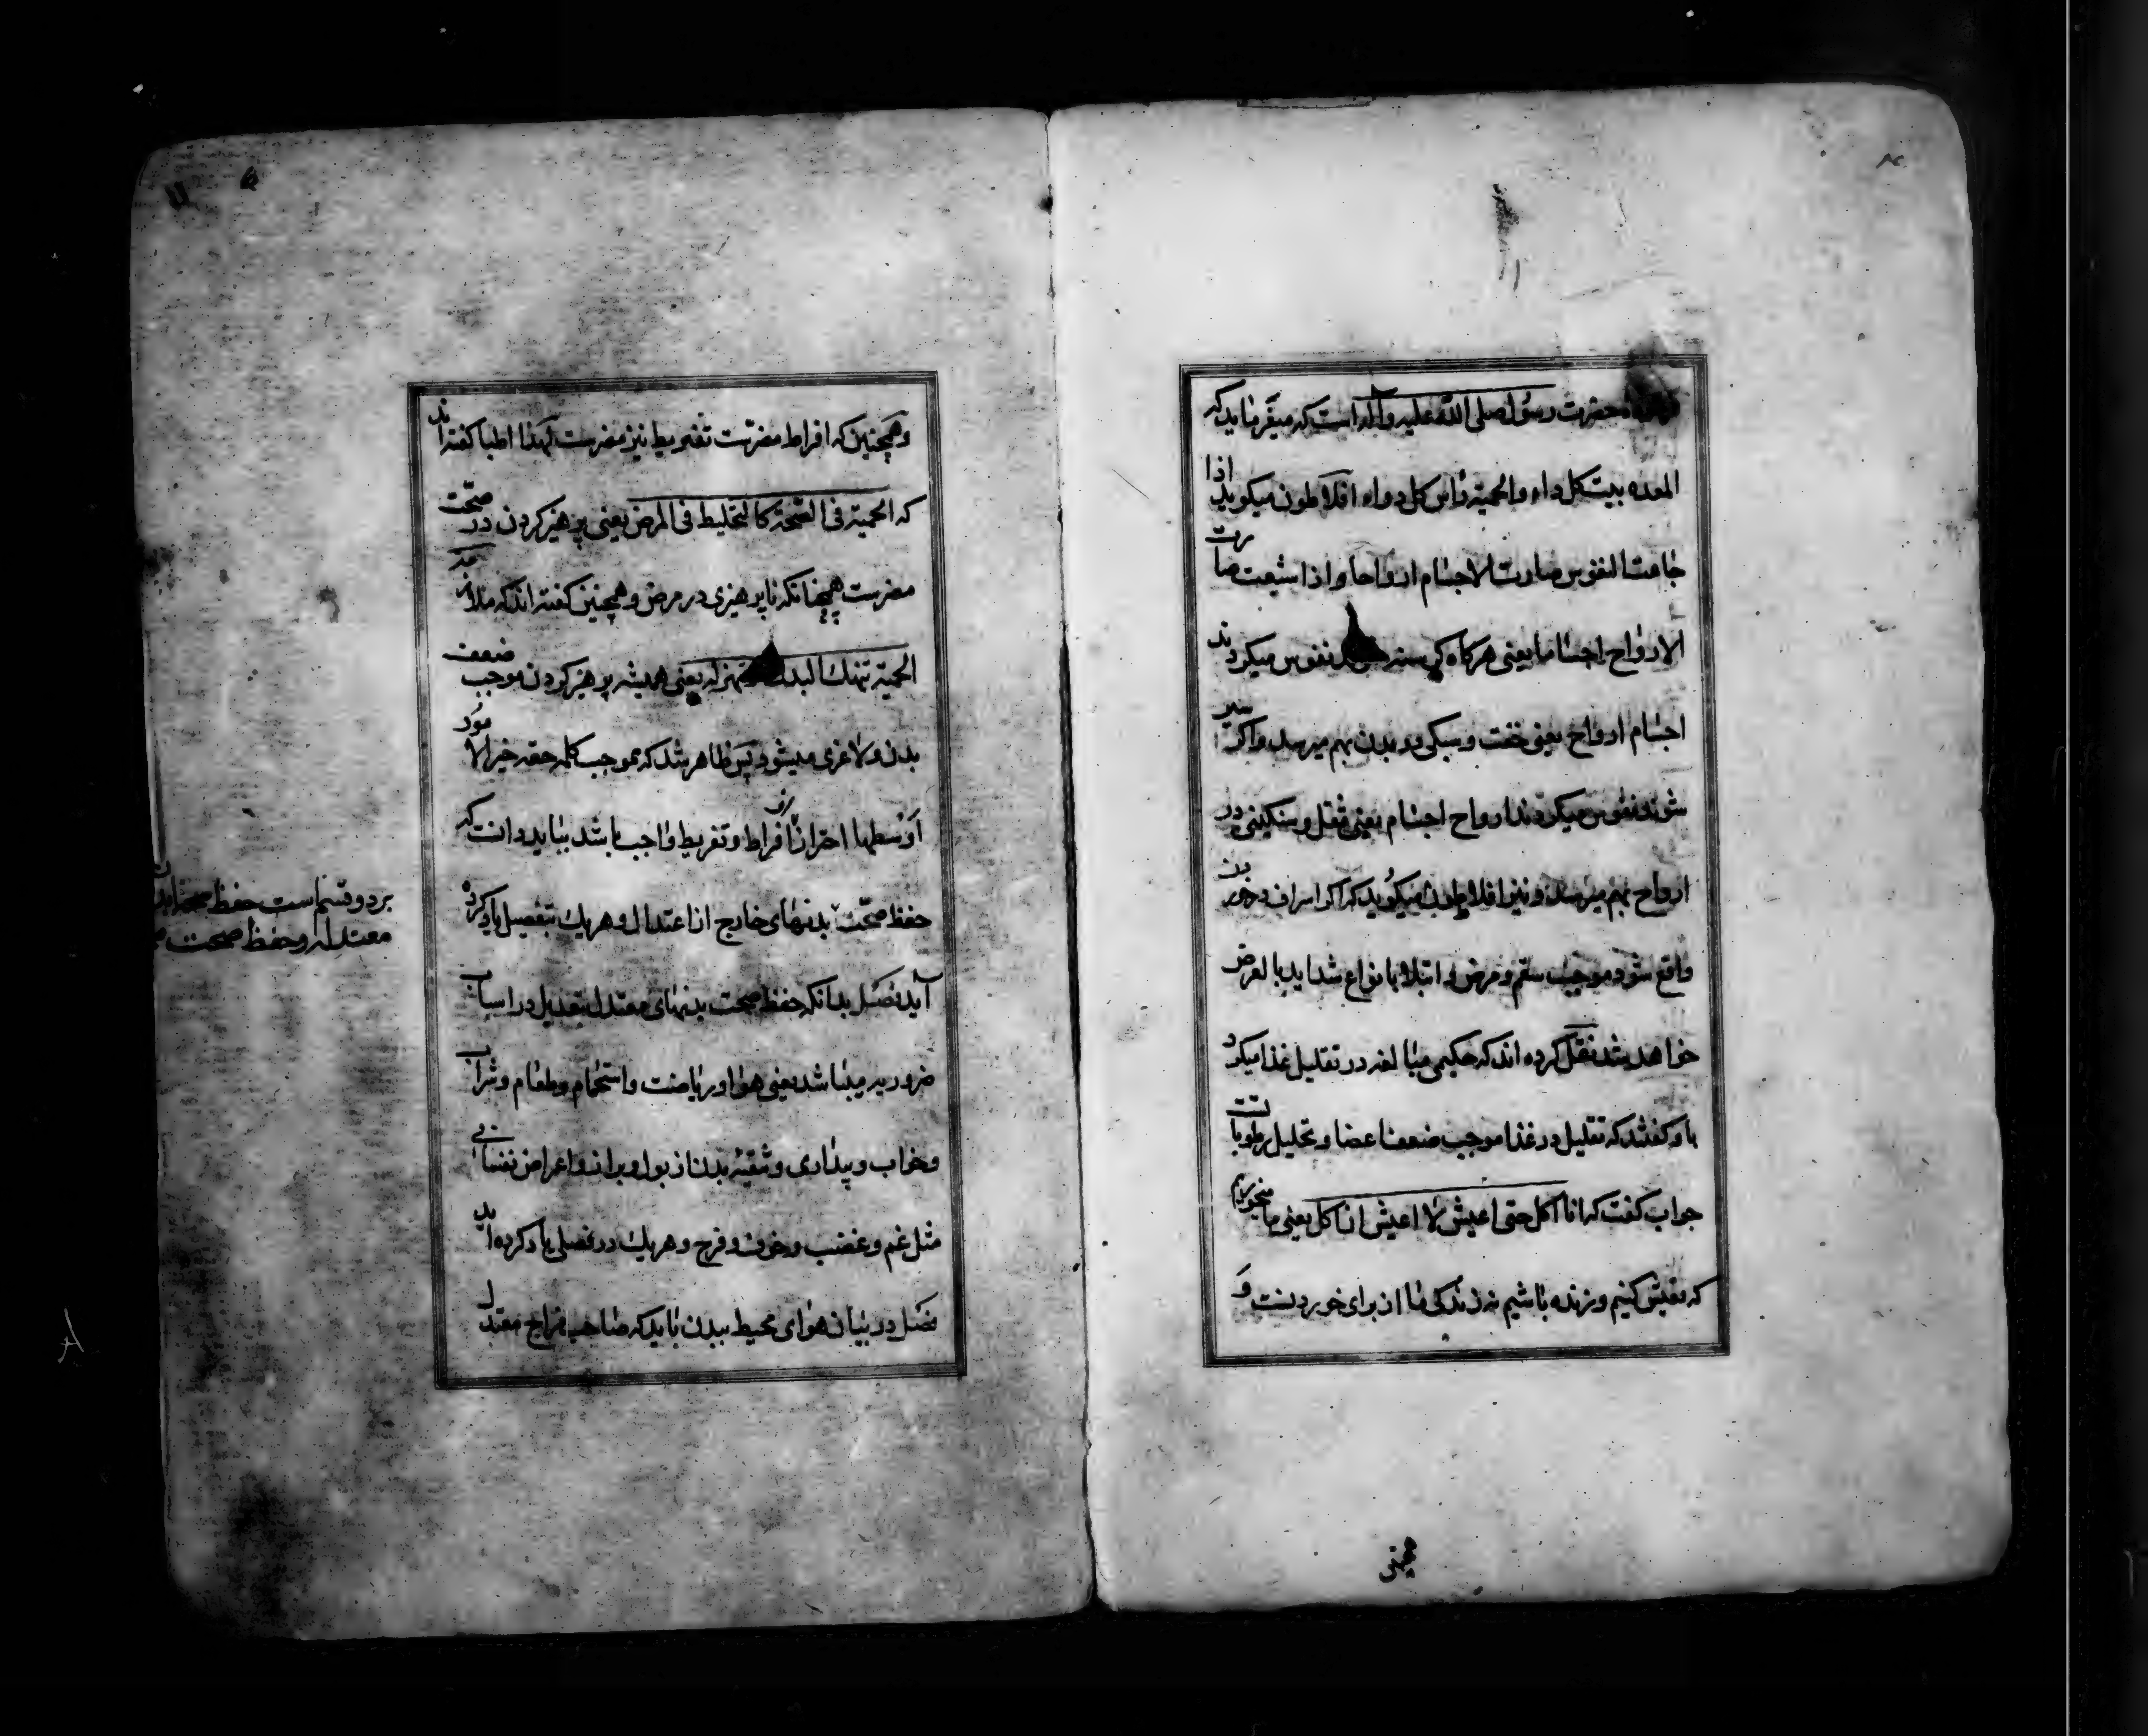 حضرت رسول صلی الله علیه وآله است که میفرماید که
المعده بیت کل داء والحمیة رأس کل دواء افلاطون میکوید اذا
جاعت النفوس صارت الاجسام ارواحا واذا شبعت صارت
الارواح اجساما یعنی هرکاه کرسنه نفوس میکردند
اجسام ارواح یعنی خفت و سبکی در بدن بهم میرسد واکر سیر
شوند نفوس میکردند ارواح اجسام یعنی ثقل و سنکینی در
ارواح بهم میرسد و نیز افلاطون میکوید که اکر اسراف در
واقع شود موجب سقم و مرض و ابتلا بانواع شداید بالعرض
خواهد شد نقل کرده اند که حکیمی مبالغه در تقلیل غذا میکرد
باو کفتند که تقلیل در غذا موجب ضعف اعضا و تحلیل رطوبات
جواب کفت که انا آکل حتی اعیش لا اعیش ان آکل یعنی ما میخوریم
که تعیش کنیم و زنده باشیم نه زندکی ما از برای خوردنست و
همچنین
وهمچنین که افراط مضرّست تفریط نیز مضرست لهذا اطبا کفته اند
که الحمیة فی الصّحة کالتخلیط فی المرض یعنی پرهیز کردن در صحّت
مضرست همچنانکه ناپرهیزی در مرض و همچنین کفته اند که ملازمة
الحمیة تنهك البدن وتهزله یعنی همیشه پرهیز کردن موجب ضعف
بدن و لاغری میشود پس ظاهر شد که بموجب کلمه حقه خیر الامور
اوسطها احتراز از افراط و تفریط واجب باشد بباید دانست که
حفظ صحّت بدنهای خارج از اعتدال و هریك بتفصیل یاد کرده
آید فصل بدانکه حفظ صحت بدنهای معتدل بتعدیل در اسباب
ضروریه میباشد یعنی هوا و ریاضت و استحمام و طعام و شراب
وخواب و بیداری و تنقیه بدن از بول و براز و اعراض نفسانی
مثل غم و غضب و خوف و فرح و هریك در فصلی یاد کرده اید
فصل در بیان هوای محیط ببدن باید که صاحب مزاج معتدل
بر دو قسم است حفظ صحت
معتدله و حفظ صحت